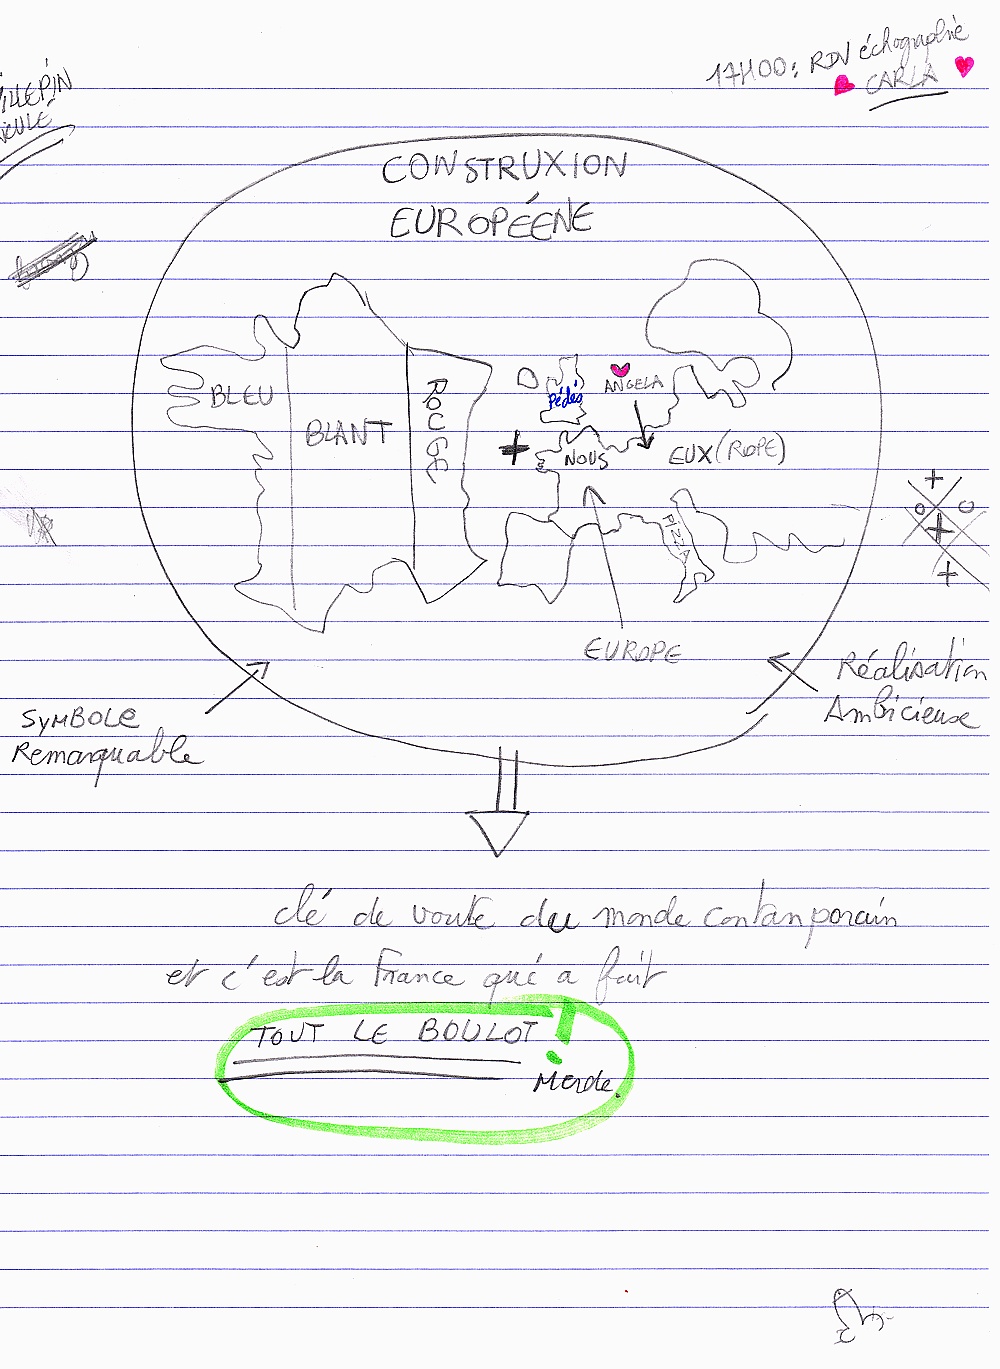 17H00: RDV échographie
CARLA
ILLEPIN
CULÉ
CONSTRUXION
EUROPÉÈNE
BLEU
BLANT
ROUGE
Pédés
ANGELA
+
NOUS
EUX (ROPE)
PIZZA
EUROPE
+
o + o
+
SYMBOLE
Remarquable
Réalisation
Ambicieuse
clé de voute du monde contanporain
et c'est la France qui a fait
TOUT LE BOULOT !
Merde.